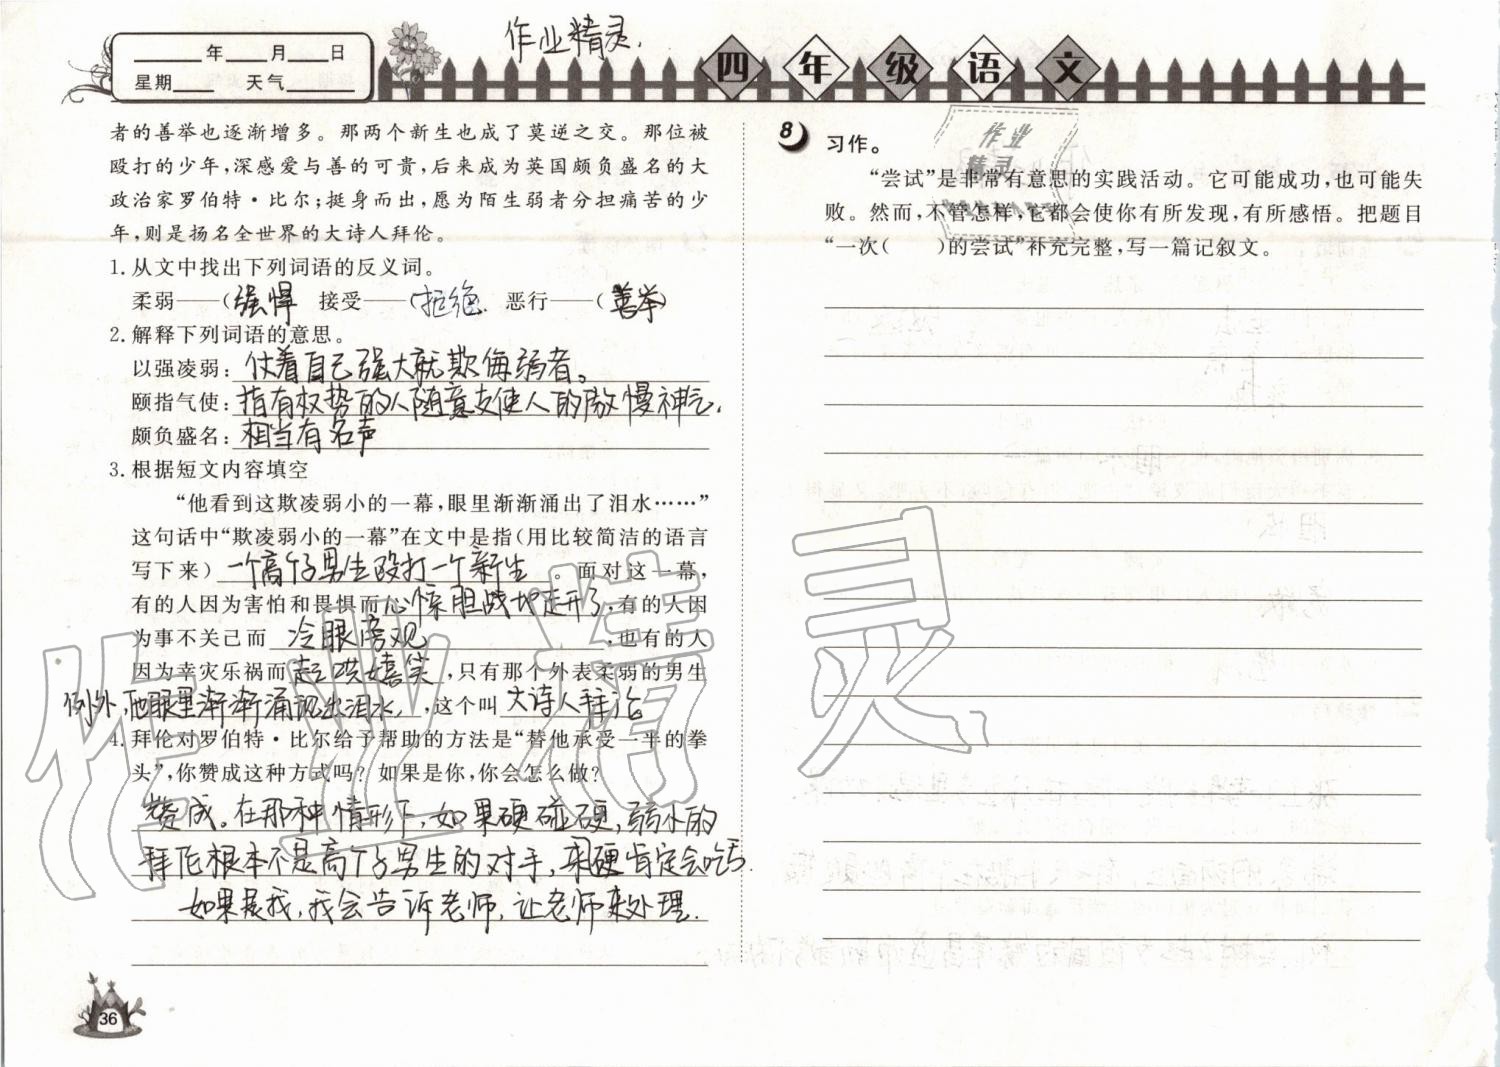 作业精灵.
____年____月____日
星期____ 天气______
四年级语文
者的善举也逐渐增多。那两个新生也成了莫逆之交。那位被
殴打的少年,深感爱与善的可贵,后来成为英国颇负盛名的大
政治家罗伯特·比尔;挺身而出,愿为陌生弱者分担痛苦的少
年,则是扬名全世界的大诗人拜伦。
1. 从文中找出下列词语的反义词。
柔弱——(强悍 接受——(拒绝. 恶行——(善举)
2. 解释下列词语的意思。
以强凌弱:仗着自己强大就欺侮弱者。
颐指气使:指有权势的人随意支使人的傲慢神气.
颇负盛名:相当有名声
3. 根据短文内容填空
“他看到这欺凌弱小的一幕,眼里渐渐涌出了泪水……”
这句话中“欺凌弱小的一幕”在文中是指(用比较简洁的语言
写下来)一个高个子男生殴打一个新生。面对这一幕,
有的人因为害怕和畏惧而心惊胆战地走开了,有的人因
为事不关己而冷眼旁观,也有的人
因为幸灾乐祸而起哄嬉笑,只有那个外表柔弱的男生
例外,他眼里渐渐涌现出泪水,,这个叫大诗人拜伦
4. 拜伦对罗伯特·比尔给予帮助的方法是“替他承受一半的拳
头”,你赞成这种方式吗?如果是你,你会怎么做?
赞成。在那种情形下,如果硬碰硬,弱小的
拜伦根本不是高个子男生的对手,来硬肯定会吃亏.
如果是我,我会告诉老师,让老师来处理.
36
8 习作。
作业
精灵
“尝试”是非常有意思的实践活动。它可能成功,也可能失
败。然而,不管怎样,它都会使你有所发现,有所感悟。把题目
“一次( )的尝试”补充完整,写一篇记叙文。
作业精灵